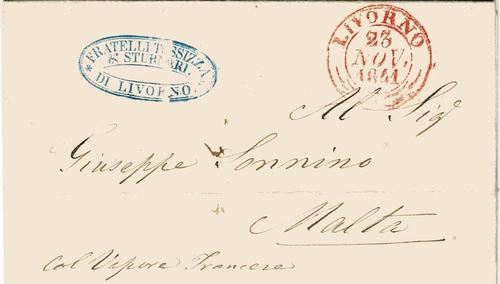 FRATELLI
& STUR
DI LIVORNO
LIVORNO
23
NOV.
1841
Al Sigr
Giuseppe Sonnino
Malta
Col Vapore Francese